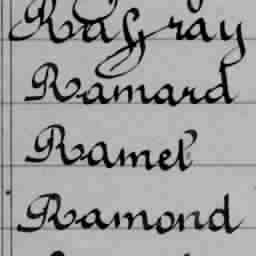 Ragray
Ramard
Ramel
Ramond